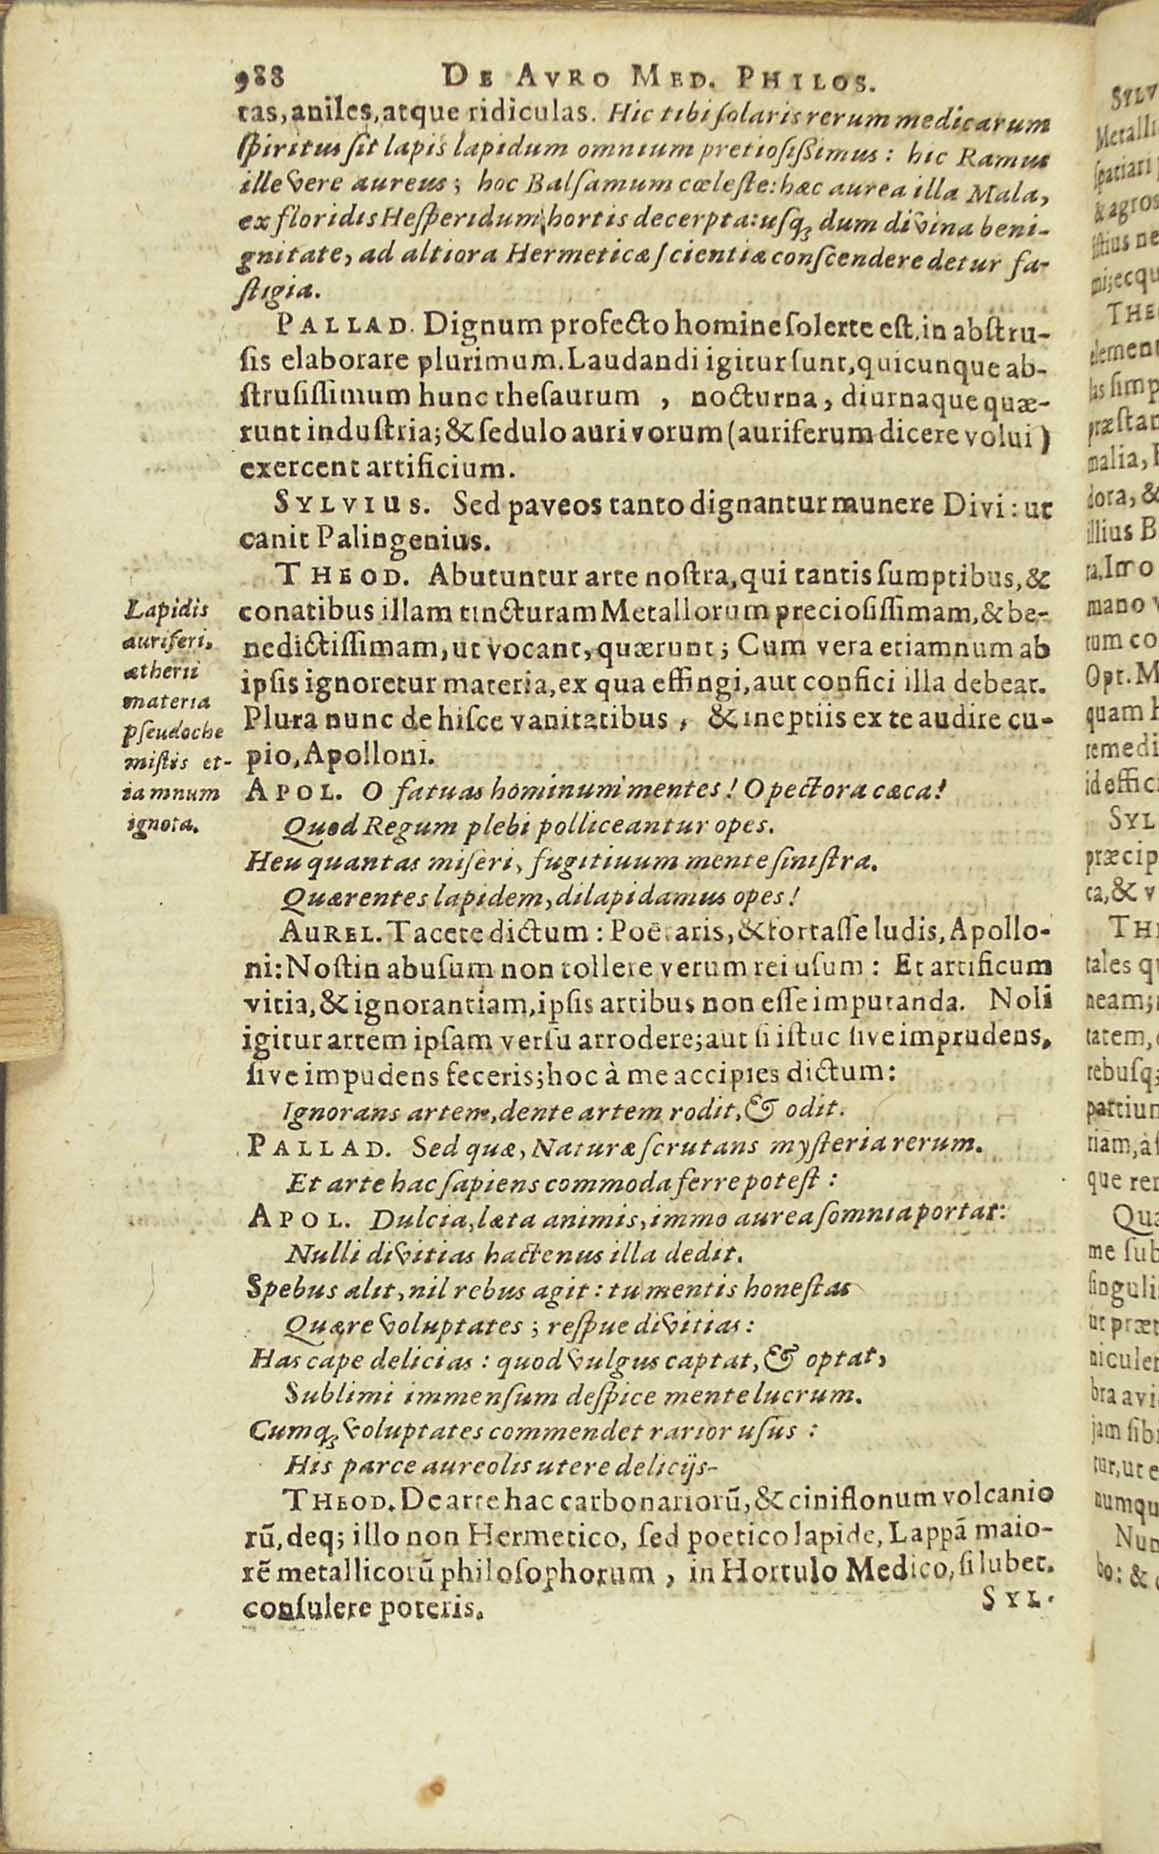 988 DE AVRO MED. PHILOS.
tas, aniles, atque ridiculas. Hic tibi solaris rerum medicarum
spiritus sit lapis lapidum omnium pretiosissimus: hic Ramus
ille vere aureus; hoc Balsamum cœleste: hæc aurea illa Mala,
ex floridis Hesperidum hortis decerpta: usq; dum divina beni-
gnitate, ad altiora Hermeticæ scientiæ conscendere detur fa-
stigia.
PALLAD. Dignum profecto homine solerte est, in abstru-
sis elaborare plurimum. Laudandi igitur sunt, quicunque ab-
strusissimum hunc thesaurum, nocturna, diurnaque quæ-
runt industria; & sedulo aurivorum (auriferum dicere volui)
exercent artificium.
SYLVIUS. Sed paveos tanto dignantur munere Divi: ut
canit Palingenius.
THEOD. Abutuntur arte nostra, qui tantis sumptibus, &
conatibus illam tincturam Metallorum preciosissimam, & be-
nedictissimam, ut vocant, quærunt; Cum vera etiamnum ab
ipsis ignoretur materia, ex qua effingi, aut confici illa debeat.
Plura nunc de hisce vanitatibus, & ineptiis ex te audire cu-
pio, Apolloni.
Lapidis
auriferi,
ætherii
materia
pseudoche
mistis et-
iamnum
ignota.
APOL. O fatuas hominum mentes! O pectora cæca!
Quod Regum plebi polliceantur opes.
Heu quantas miseri, fugitiuum mente sinistra.
Quærentes lapidem, dilapidamus opes!
AUREL. Tacete dictum: Poëtaris, & fortasse ludis, Apollo-
ni: Nostin abusum non tollere verum rei usum: Et artificum
vitia, & ignorantiam, ipsis artibus non esse imputanda. Noli
igitur artem ipsam versu arrodere; aut si istuc sive imprudens,
sive impudens feceris; hoc à me accipies dictum:
Ignorans artem, dente artem rodit, & odit.
PALLAD. Sed quæ, Naturæ scrutans mysteria rerum.
Et arte hac sapiens commoda ferre potest:
APOL. Dulcia, læta animis, immo aurea somnia portat:
Nulli divitias hactenus illa dedit.
Spebus alit, nil rebus agit: tu mentis honestas
Quære voluptates; respue divitias:
Has cape delicias: quod vulgus captat, & optat,
Sublimi immensum despice mente lucrum.
Cumq; voluptates commendet rarior usus:
His parce aureolis utere delicijs-
THEOD. De arte hac carbonariorū, & ciniflonum volcanio
rū, deq; illo non Hermetico, sed poetico lapide, Lappā maio-
rē metallicorū philosophorum, in Hortulo Medico, si lubet.
consulere poteris.
SYL.